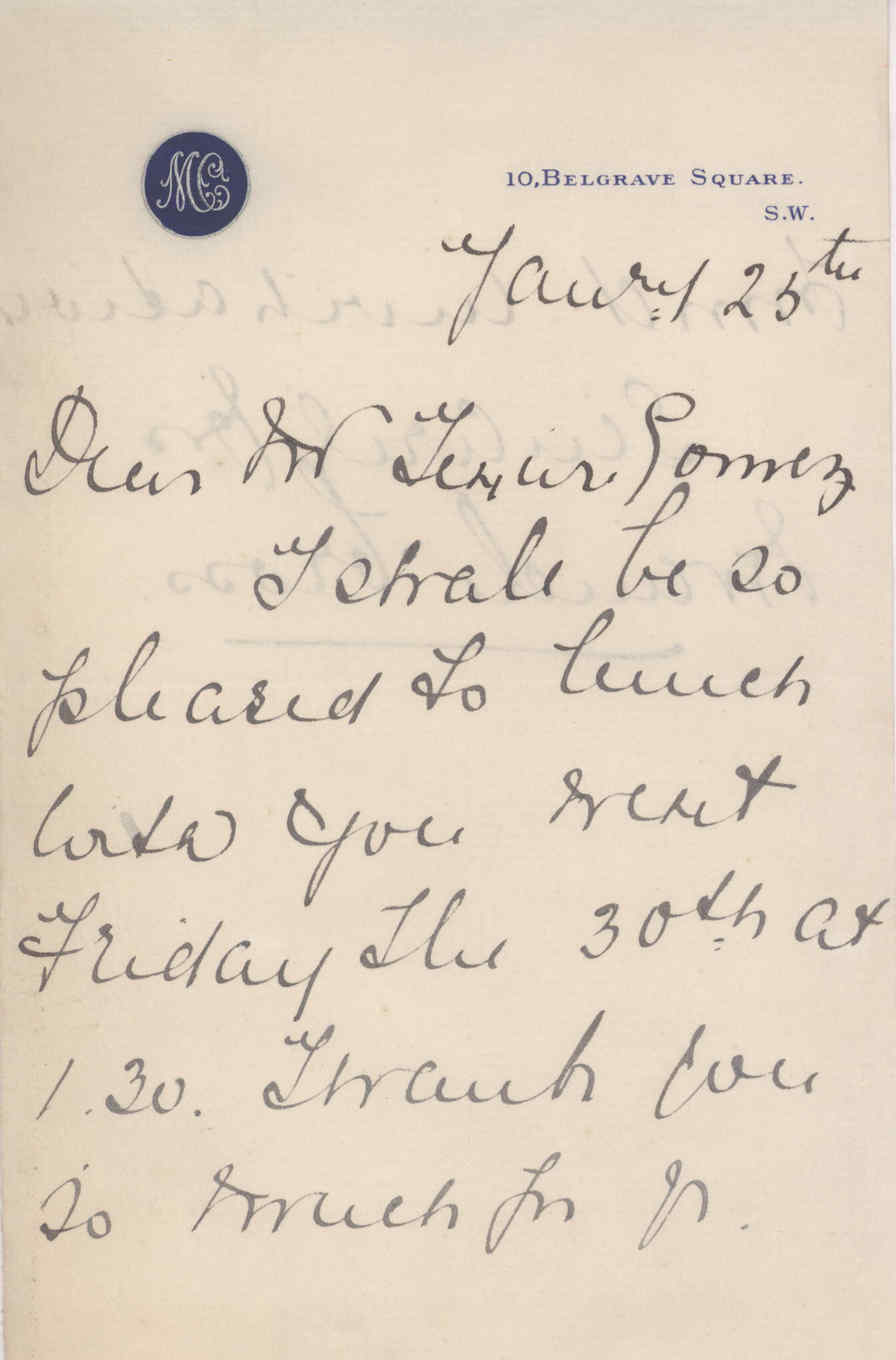 MG
10, BELGRAVE SQUARE.
S.W.
Janry 25th
Dear Mr Teixeira Gomez
I shall be so
pleased to lunch
with you next
Friday the 30th at
1.30. Thank you
so much for yr.